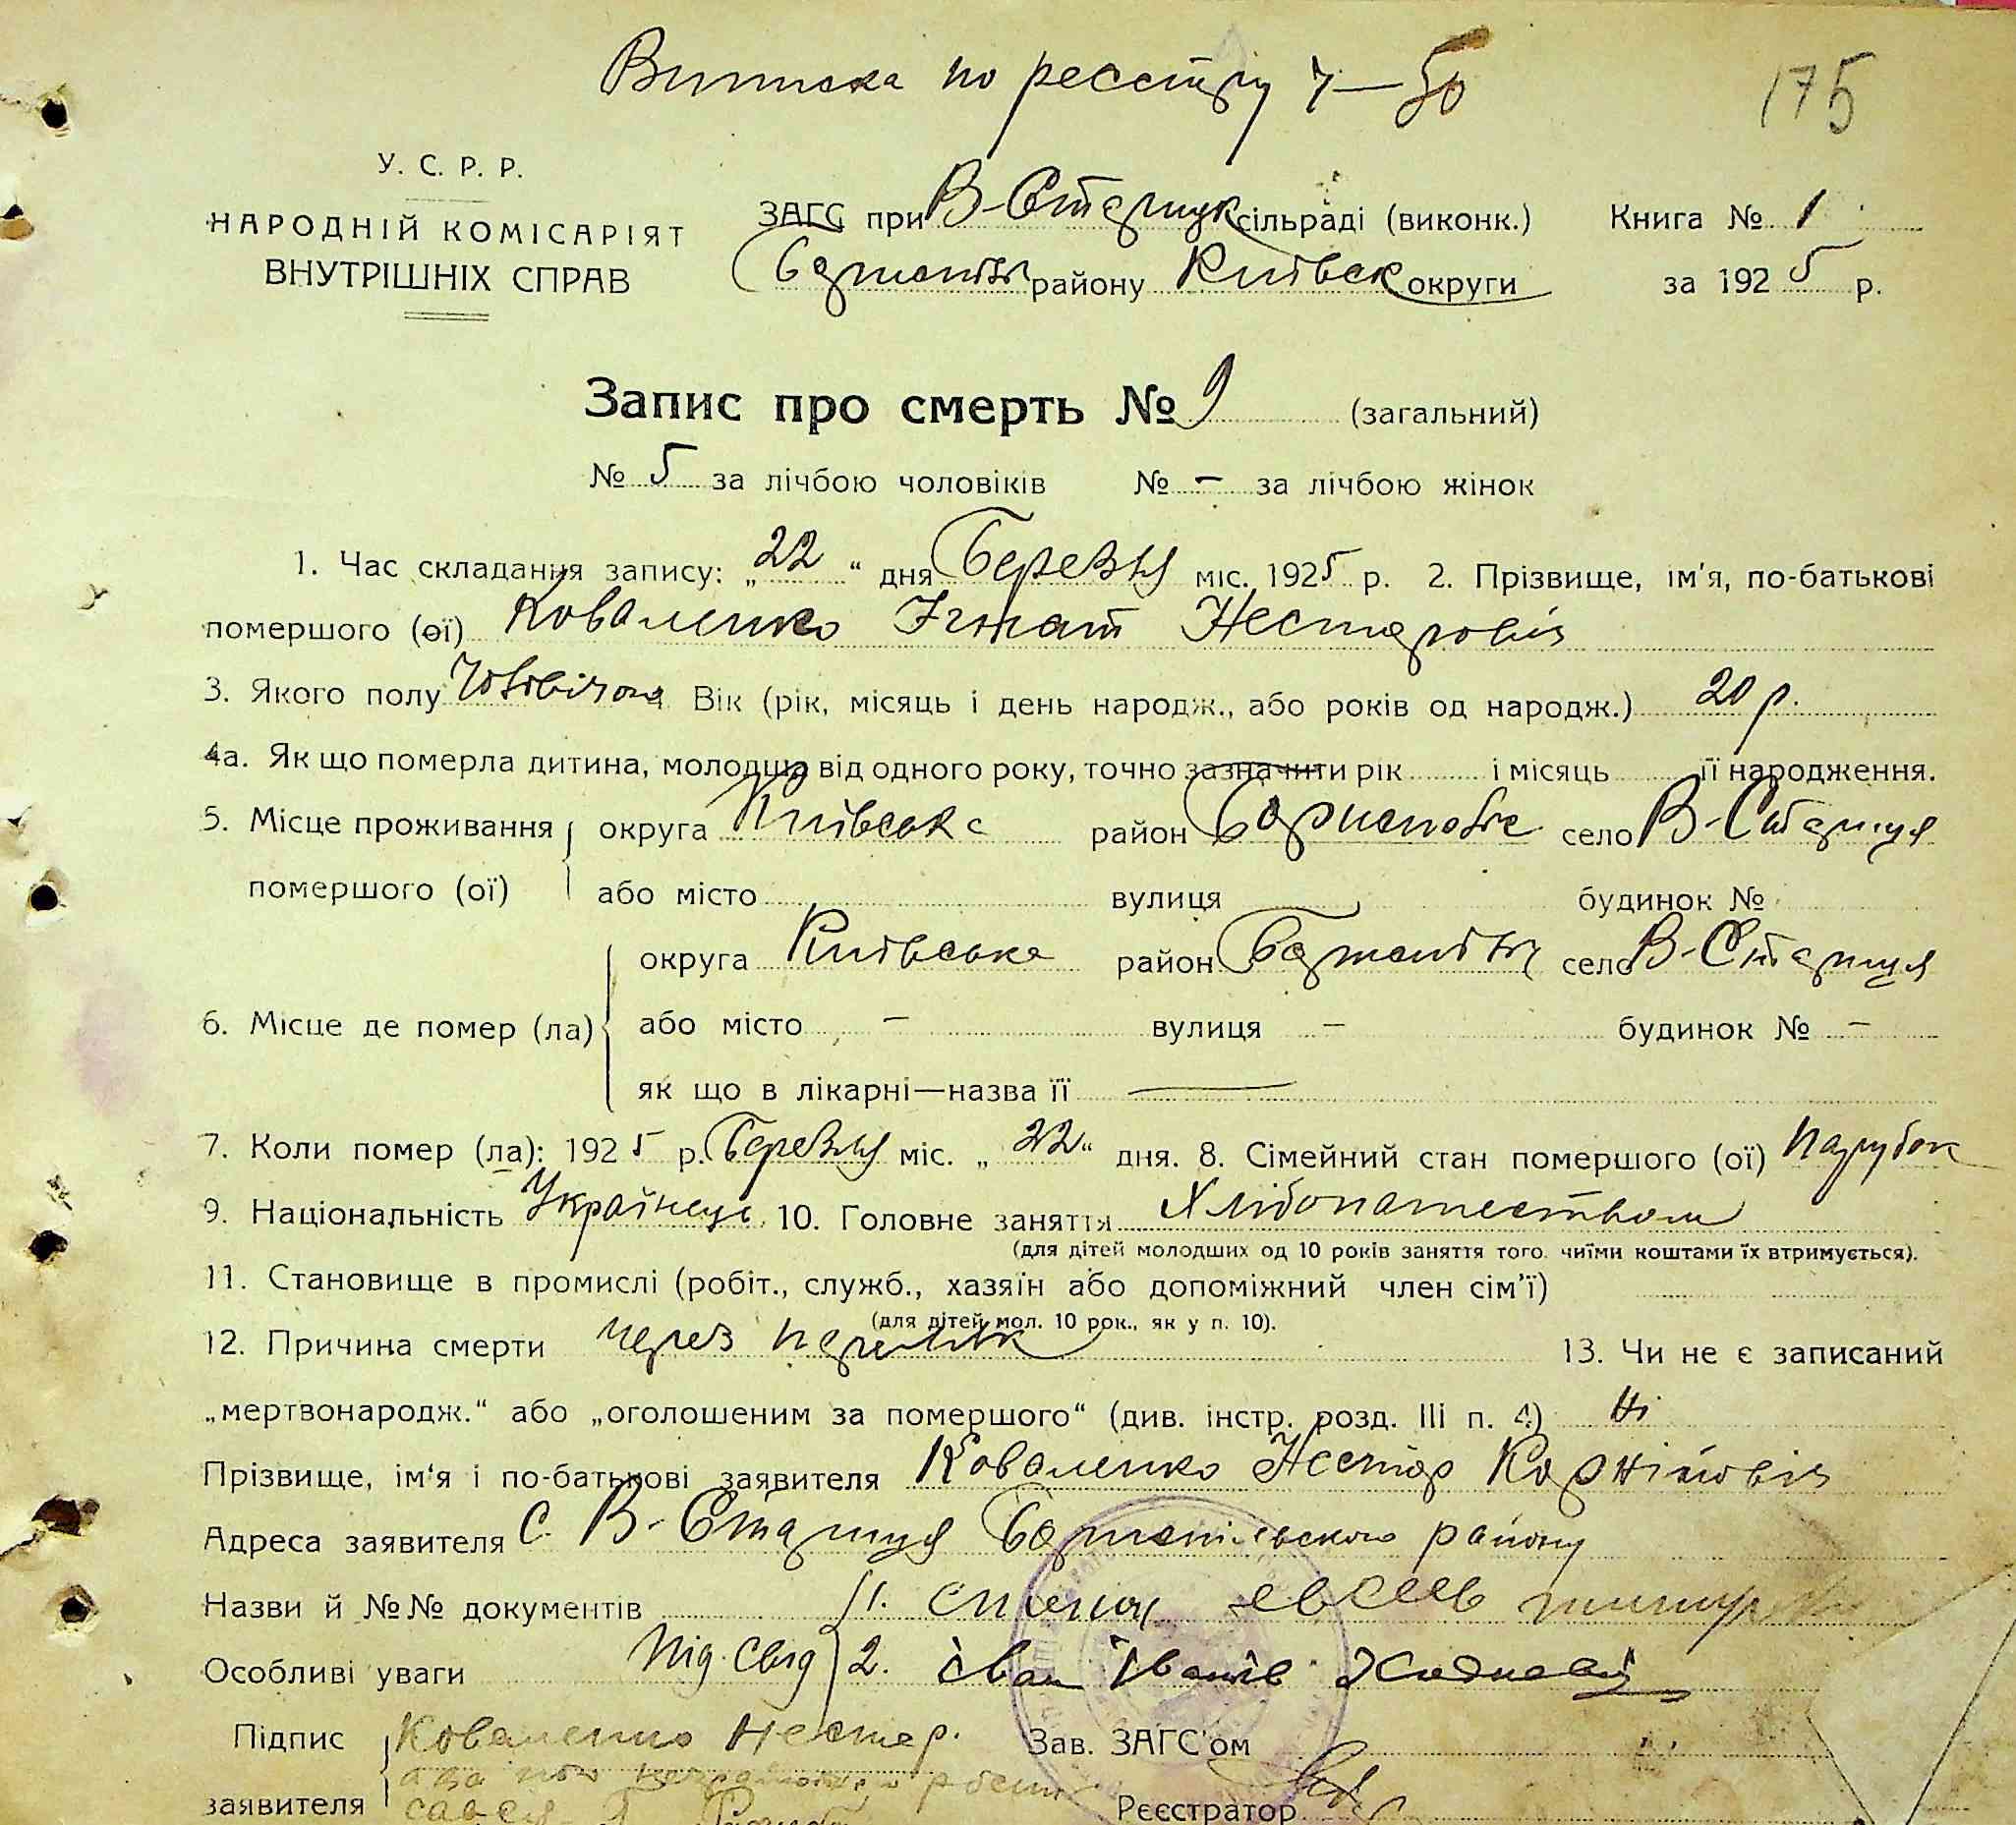 Виписка по реєстру 7—50
175
У. С. Р. Р.
НАРОДНІЙ КОМІСАРІЯТ
ВНУТРІШНІХ СПРАВ
ЗАГС при В-Старицк сільраді (виконк.)
району Київськ округи
Книга № 1
за 1925 р.
Запис про смерть № 9 (загальний)
№ 5 за лічбою чоловіків № – за лічбою жінок
1. Час складання запису: „22“ дня Березня міс. 1925 р. 2. Прізвище, ім'я, по-батькові
помершого (ої) Коваленко Ігнат Несторовіч
3. Якого полу Вік (рік, місяць і день народж., або років од народж.) 20 р.
4а. Як що померла дитина, молодша від одного року, точно зазначити рік і місяць її народження.
5. Місце проживання помершого (ої) округа Київська район село В-Стариця
або місто вулиця будинок №
6. Місце де помер (ла) округа Київська район село В-Стариця
або місто – вулиця – будинок № –
як що в лікарні—назва її —
7. Коли помер (ла): 1925 р. Березня міс. „22“ дня. 8. Сімейний стан помершого (ої) парубок
9. Національність Українець 10. Головне заняття Хлібопашеством
(для дітей молодших од 10 років заняття того, чиїми коштами їх втримується).
11. Становище в промислі (робіт., служб., хазяїн або допоміжний член сім'ї)
(для дітей мол. 10 рок., як у п. 10).
12. Причина смерти через 13. Чи не є записаний
„мертвонародж.“ або „оголошеним за помершого“ (див. інстр. розд. III п. 4) Ні
Прізвище, ім'я і по-батькові заявителя Коваленко Нестор Корнійовіч
Адреса заявителя с. В-Стариця району
Назви й №№ документів 1.
Особливі уваги Під. свід 2. Іван
Підпис заявителя Коваленко Нестер.
Зав. ЗАГС'ом
Реєстратор